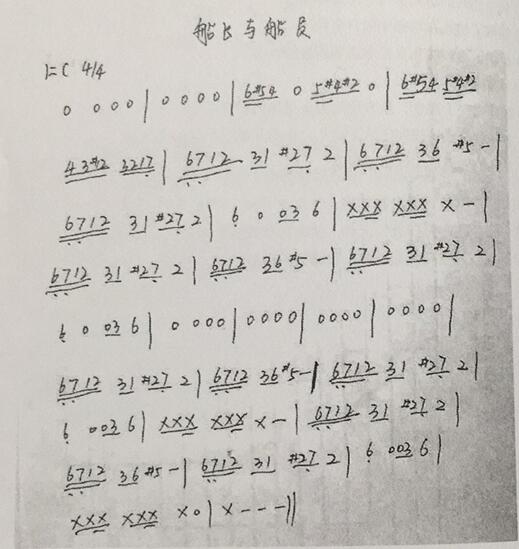 船长与船员
1=C 4/4
0 0 0 0 | 0 0 0 0 | 6#54 0 5#4#2 0 | 6#54 5#4#2
43#2 3217 | 6712 31 #27 2 | 6712 36 #5 - |
6712 31 #27 2 | 6 0 03 6 | XXX XXX X - |
6712 31 #27 2 | 6712 36 #5 - | 6712 31 #27 2 |
6 0 03 6 | 0 0 0 0 | 0 0 0 0 | 0 0 0 0 | 0 0 0 0 |
6712 31 #27 2 | 6712 36 #5 - | 6712 31 #27 2 |
6 0 03 6 | XXX XXX X - | 6712 31 #27 2 |
6712 36 #5 - | 6712 31 #27 2 | 6 0 03 6 |
XXX XXX X 0 | X - - - ||